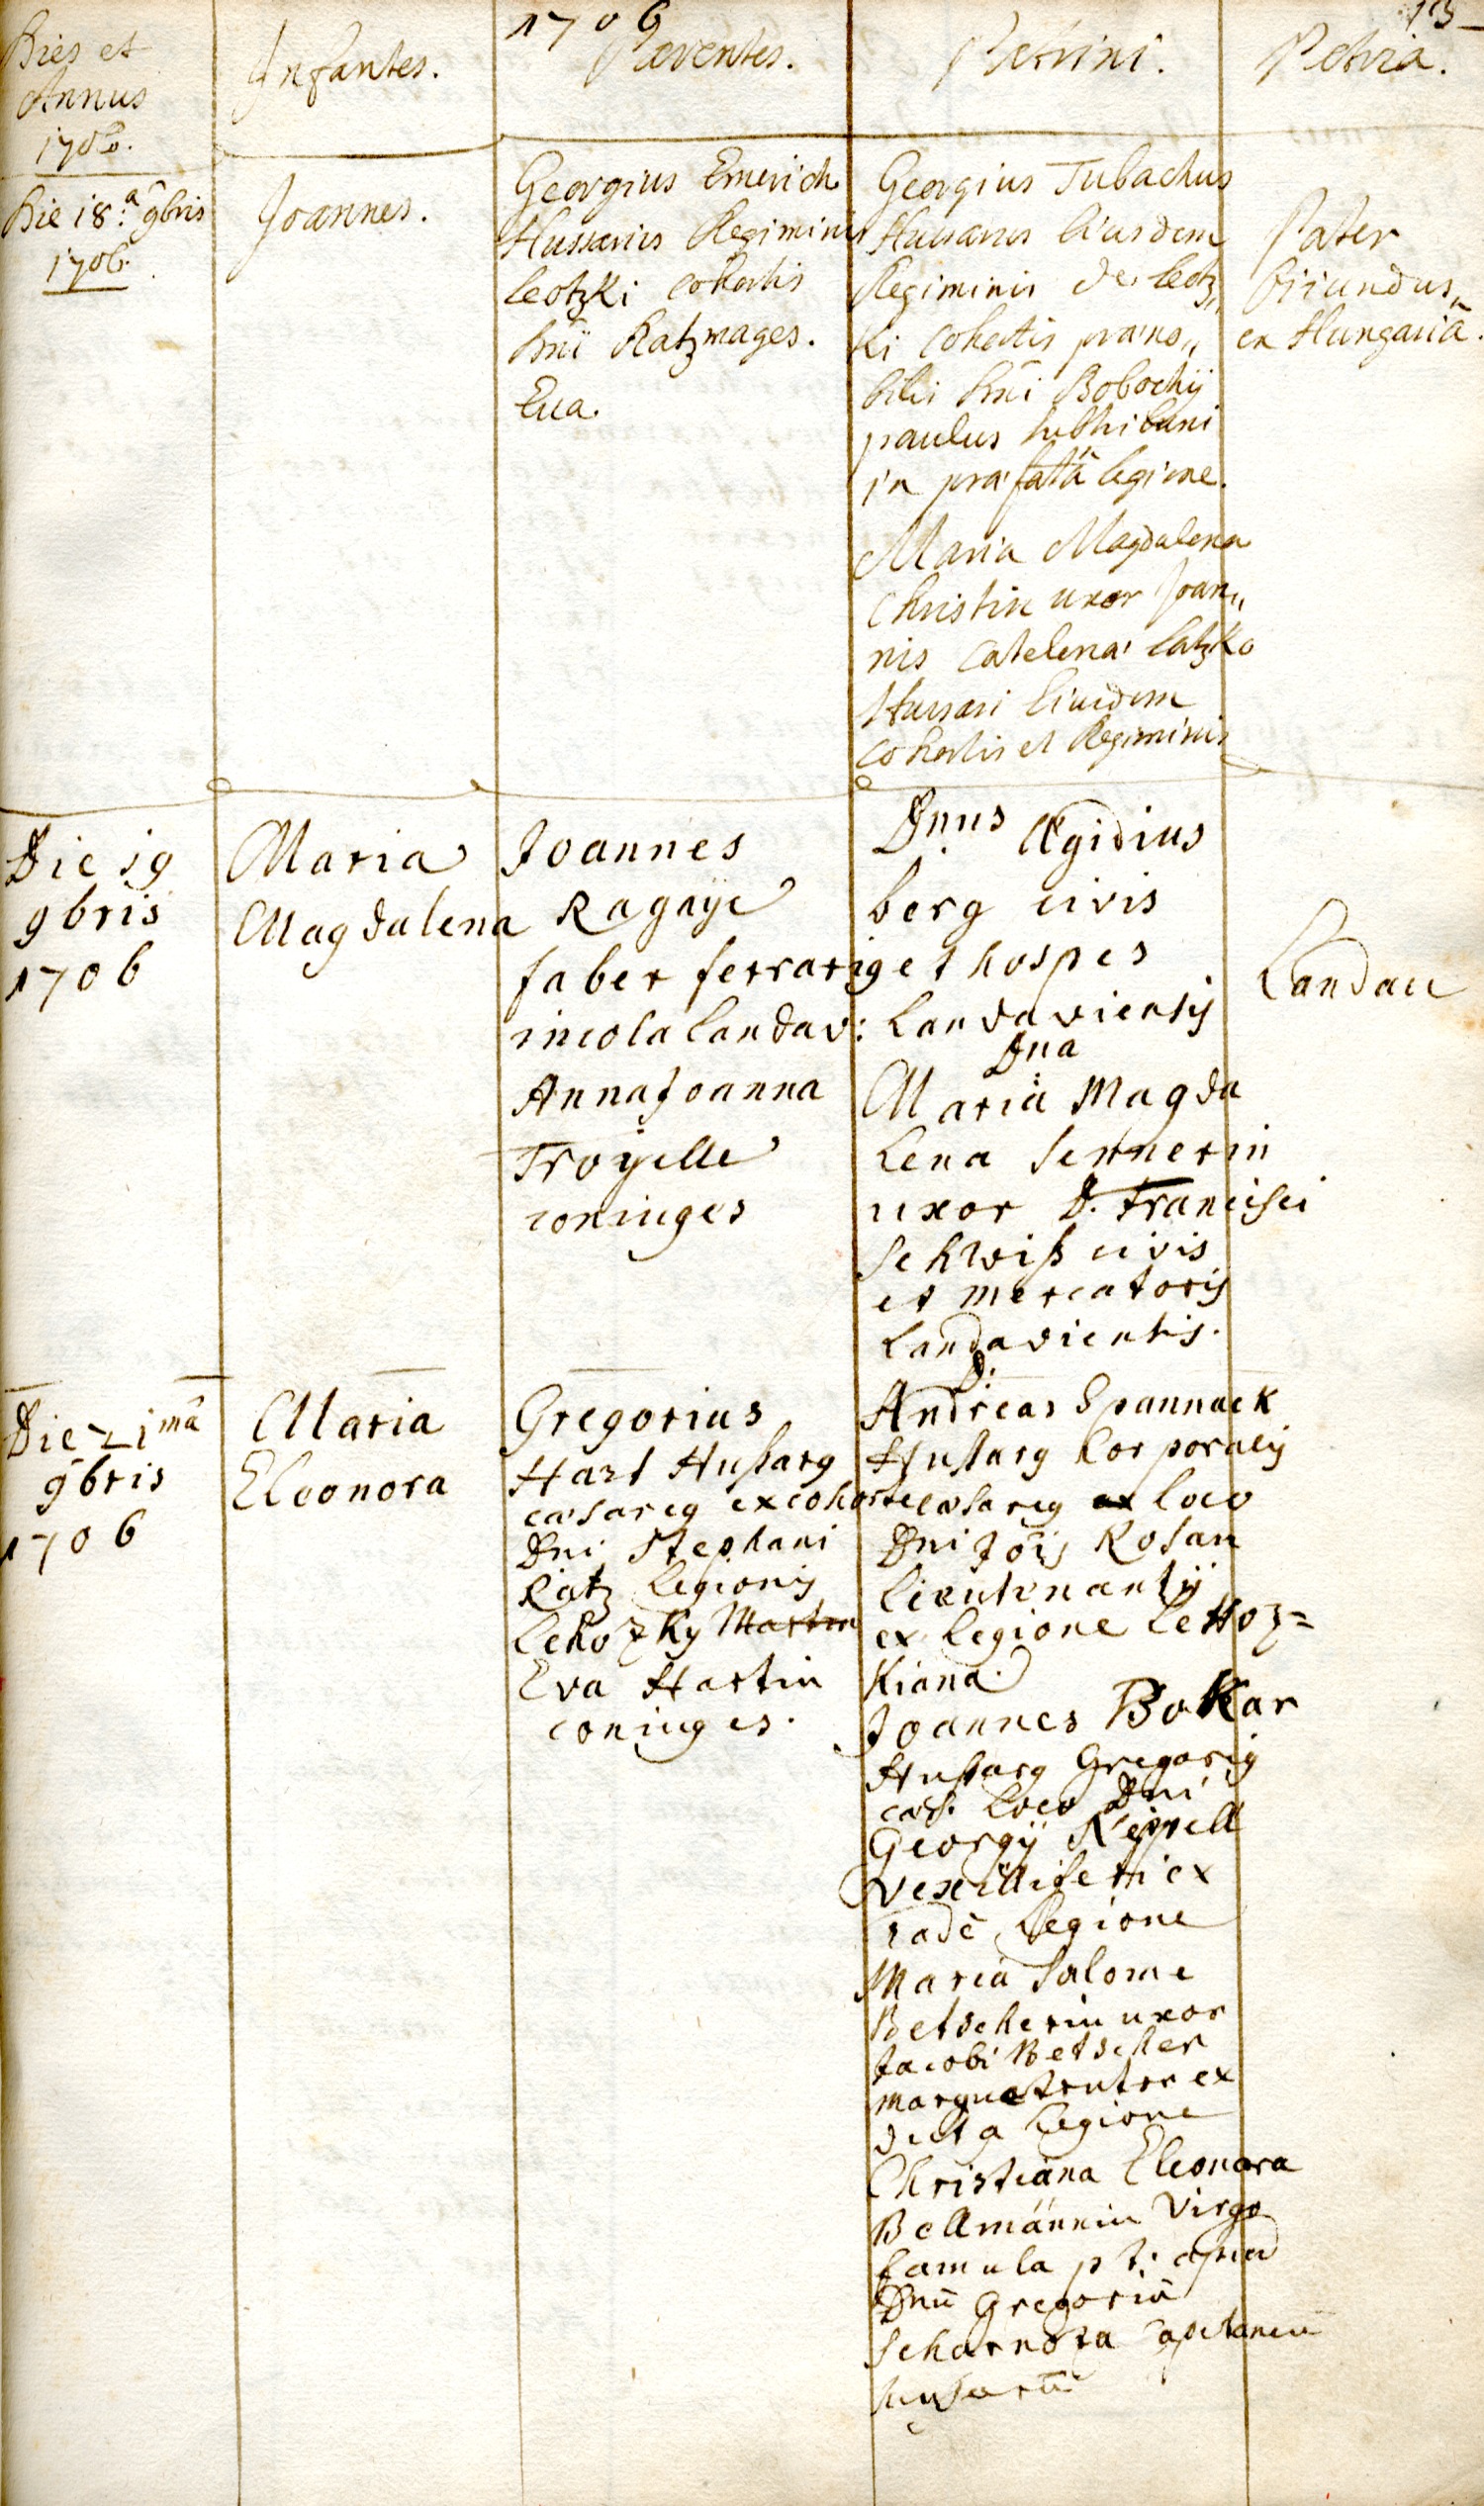 1706
13
Dies et
Annus
1706.
Infantes.
Parentes.
Patrini.
Patria.
Die 18.a 9bris
1706.
Joannes.
Georgius Emerich
Hussarius Regiminis
leotzki cohortis
Dni Katzmages.
Eua.
Georgius Tubachus
Hussarus Eiusdem
Regiminis de leotz„
ki cohortis præno„
bilis Dni Bobochij
paulus
in præfatâ legione.
Maria Magdalena
Christin uxor Joan„
nis Catelena Latzko
Hussari Eiusdem
cohortis et Regiminis
Pater
Oriundus„
ex Hungariâ.
Die 19
9bris
1706
Maria
Magdalena
Joannes
Ragaÿe
faber ferrarig
incola landav:
Anna Joanna
Troÿelle
coniuges
Dnus Ægidius
berg civis
et hospes
Landaviensis
Dna
Maria Magda
Lena Sennerin
uxor D. Francisci
Schwiß civis
et mercatoris
Landaviensis.
Landau
Die 21mâ
9bris
1706
Maria
Eleonora
Gregorius
Hart Hußarg
cæsareg ex cohorte
Dni Stephani
Katz legionis
Lehozky Martin
Eva Hartin
coniuges.
D.
Andreas Spannack
Hußarg Corporalis
cæsareg ex loco
Dni Jois Rosan
lieutenantij
ex legione lehoz=
kiana.
Joannes Bokar
Hußarg Gregarig
cæs. loco Dni
Georgij Keppell
vexilliferi ex
eadē legione
Maria Salome
Betscherin uxor
Jacobi Betscher
marquetenter ex
dicta legione
Christiana Eleonora
Bellmännin virgo
famula p t. apud
Dnū Gregoriū
Scharnoza Capitaneū
husarū